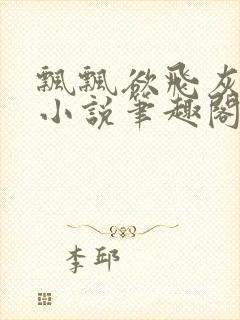 飄飄欲飛灰
小説筆趣閣
李邱